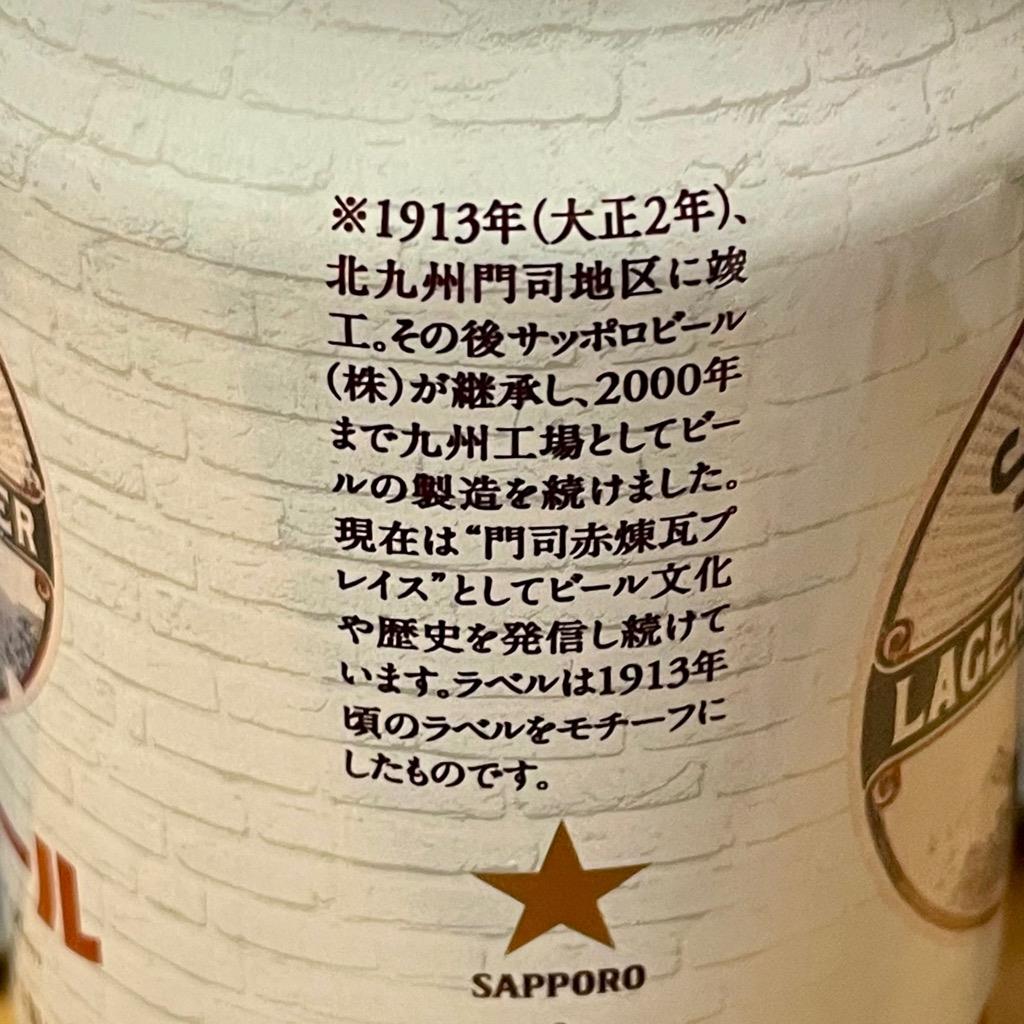 ※1913年(大正2年)、
北九州門司地区に竣
工。その後サッポロビール
(株)が継承し、2000年
まで九州工場としてビー
ルの製造を続けました。
現在は“門司赤煉瓦プ
レイス”としてビール文化
や歴史を発信し続けて
います。ラベルは1913年
頃のラベルをモチーフに
したものです。
SAPPORO
ER
LAGER
ル